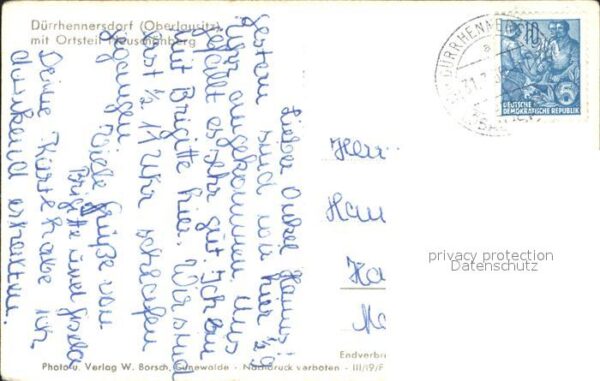 Dürrhennersdorf (Oberlausitz)
mit Ortsteil Neuschönberg
Lieber Onkel Hannes!
Gestern sind wir hier ½9
Uhr angekommen. Uns
gefällt es sehr gut. Ich bin
mit Brigitte hier. Wir sind
erst ½ 11 Uhr schlafen
gegangen.
Viele Grüße von
Brigitte und Gisela
Deine Karte habe ich
dankend erhalten.
DÜRRHENNERSDORF
DEUTSCHE
DEMOKRATISCHE REPUBLIK
5
Herr
Han
Ha
privacy protection
Datenschutz
Endverbr
Photo u. Verlag W. Borsch, Grünewalde - Nachdruck verboten - III/19/F